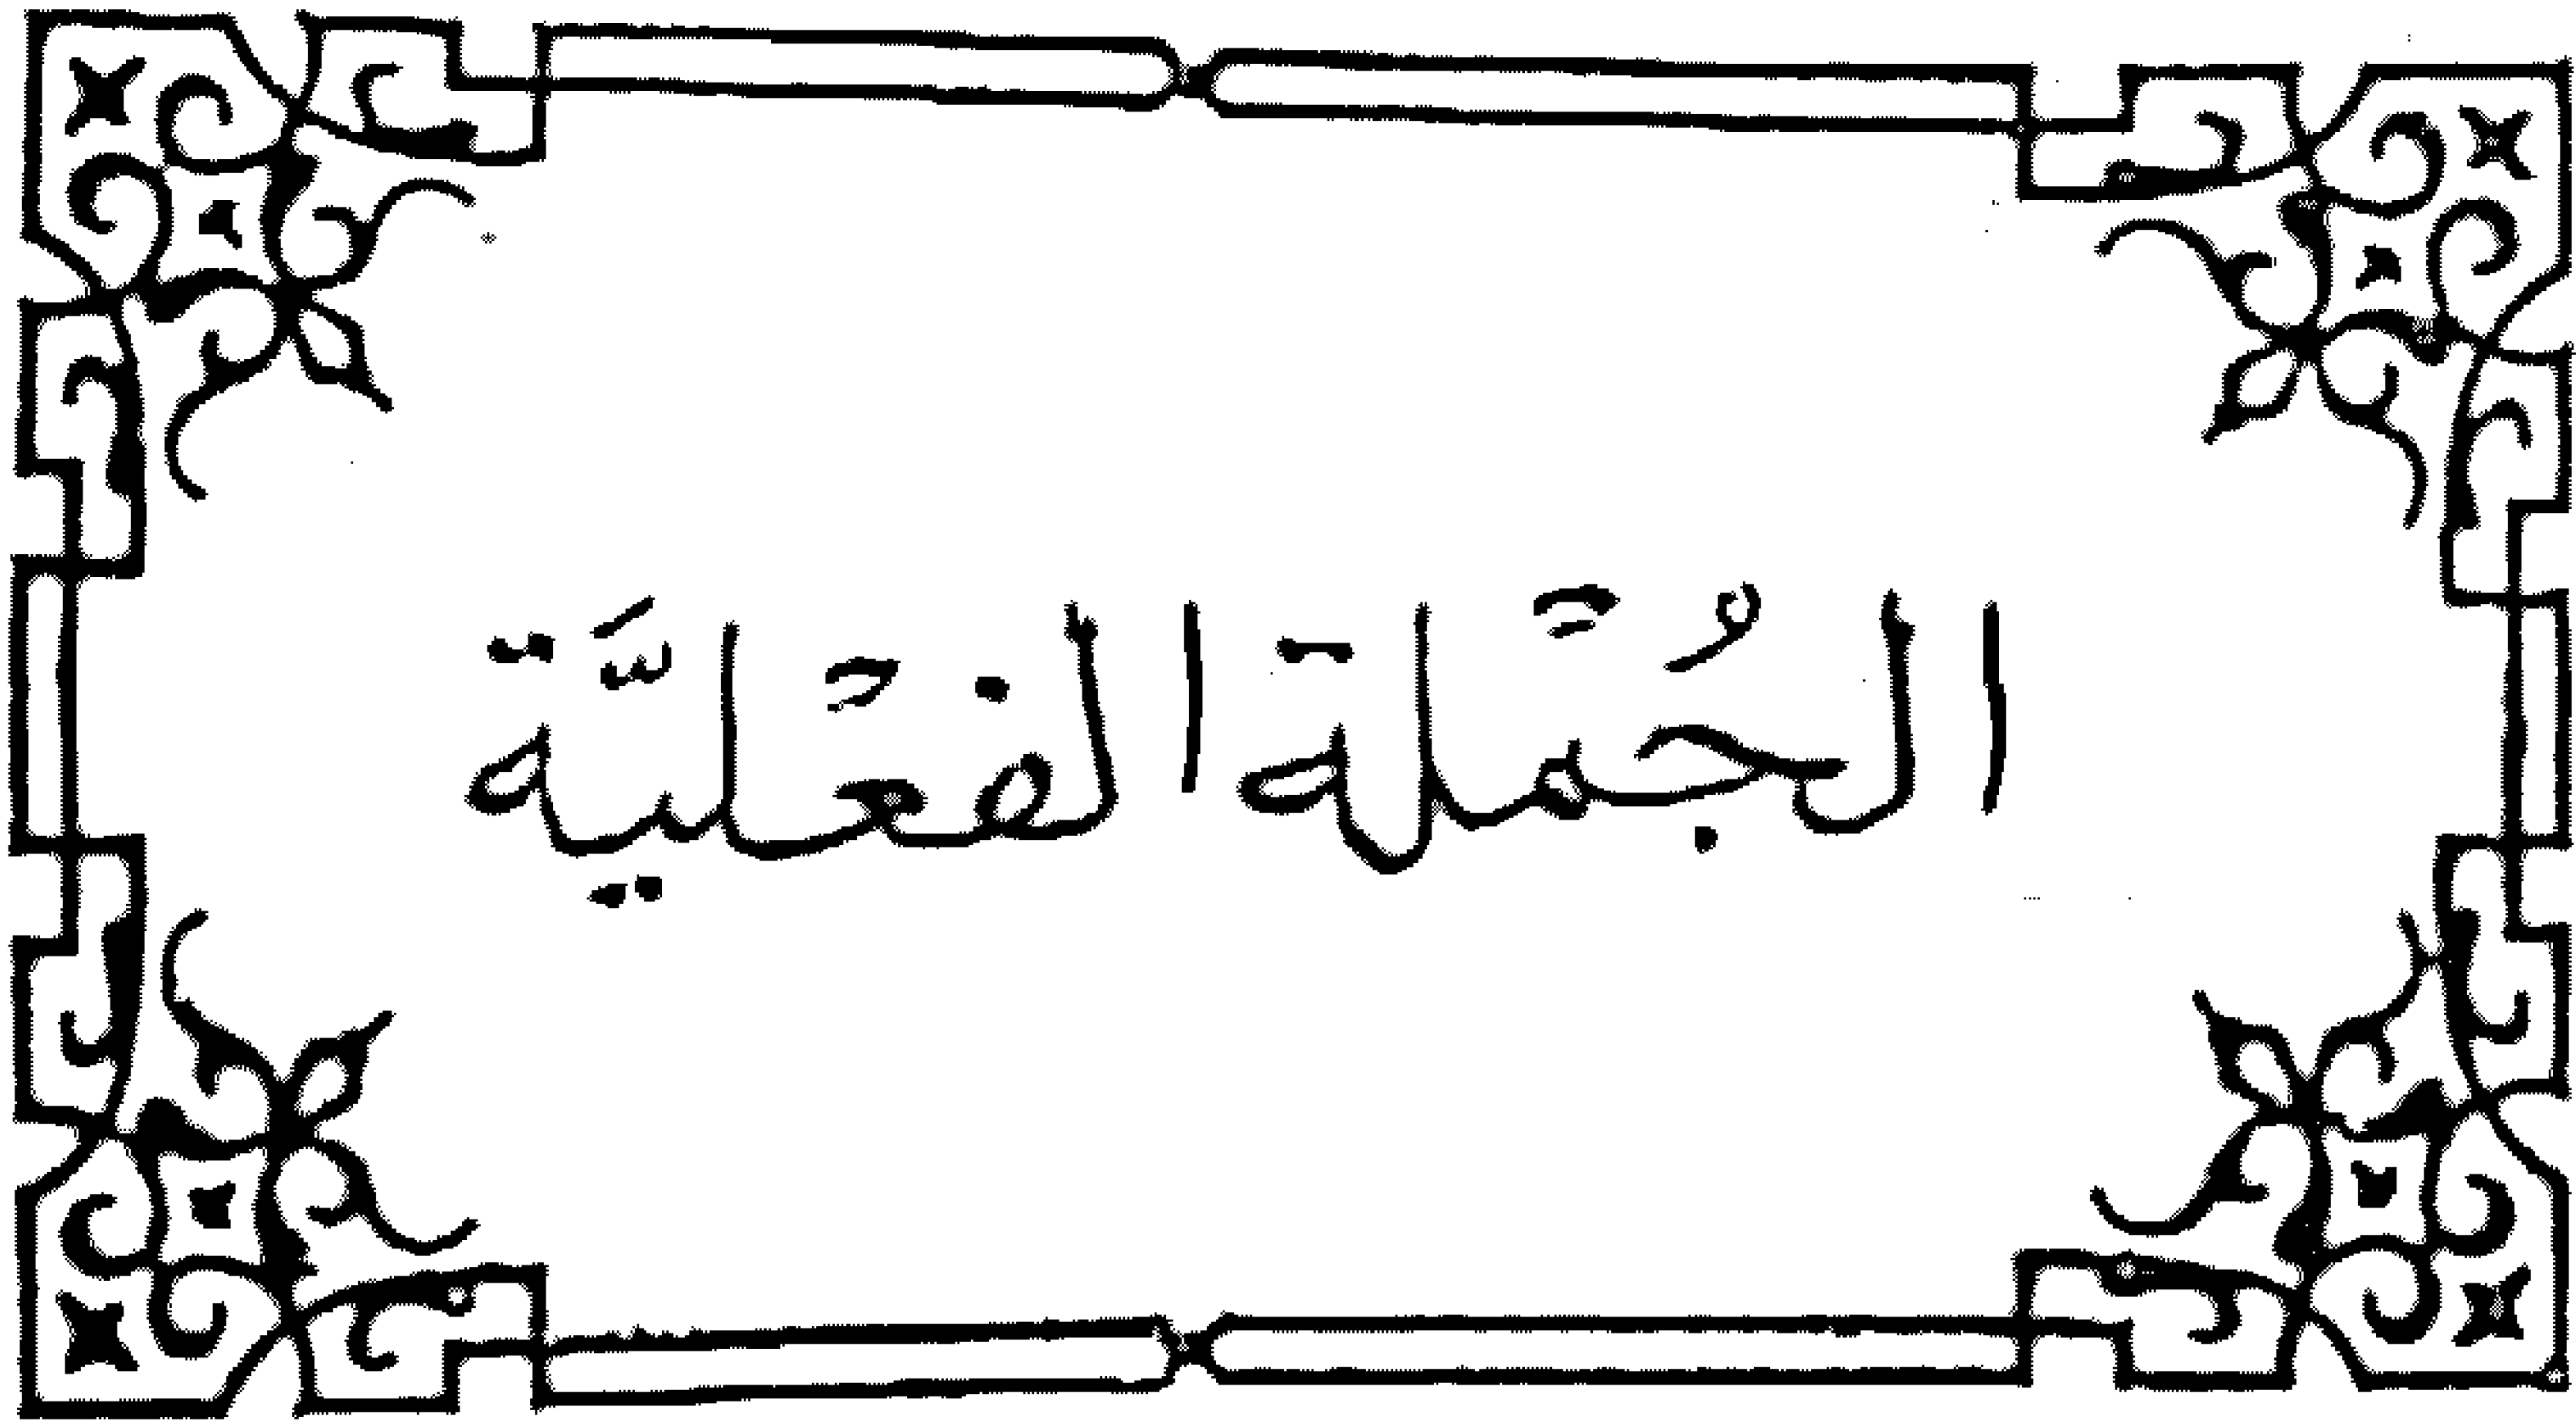 الجُمْلة الفعْليَّة